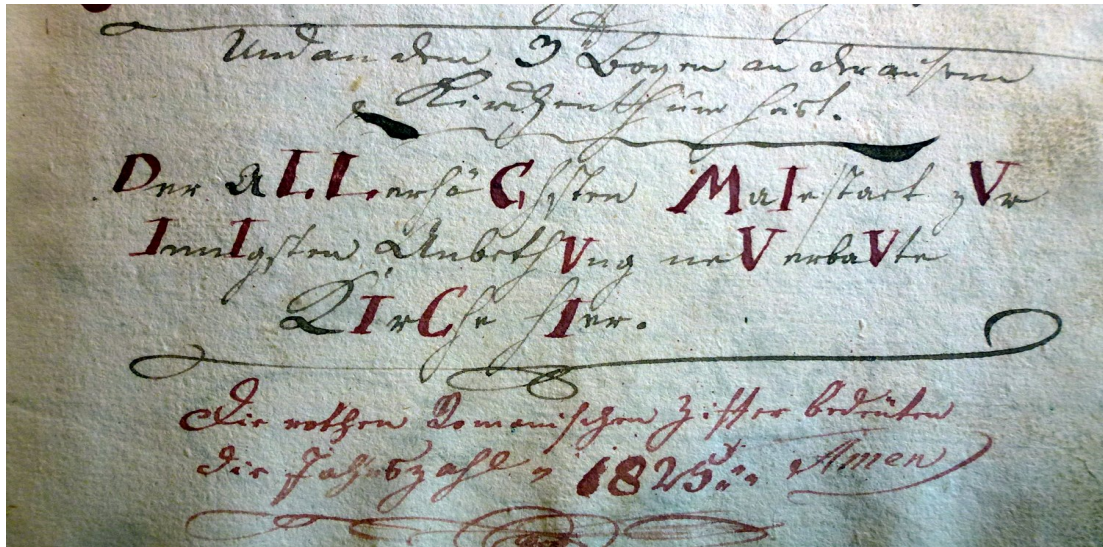 Und an dem 3 Bogen an der ausern
Kirchenthür heist.
Der ALLerhöChsten MaIestaet zVr
InnIgsten AnbethVng neV erbaVte
KIrChe hIer.
Die rothen Romanischen Ziffer bedeuten
die Jahrszahl 1825 Amen